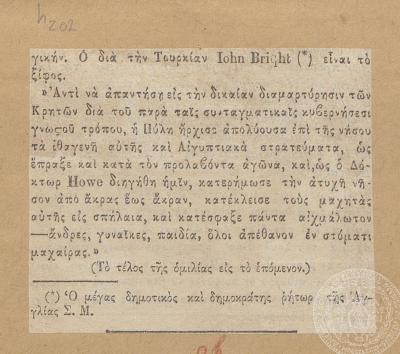 h202
γικήν. Ὁ διὰ τὴν Τουρκίαν Iohn Bright (*) εἶναι τὸ
ξίφος.
»Ἀντὶ νὰ ἀπαντήσῃ εἰς τὴν δικαίαν διαμαρτύρησιν τῶν
Κρητῶν διὰ τοῦ παρὰ ταῖς συνταγματικαῖς κυβερνήσεσι
γνωστοῦ τρόπου, ἡ Πύλη ἤρχισε ἀπολύουσα ἐπὶ τῆς νήσου
τὰ ἰθαγενῆ αὐτῆς καὶ Αἰγυπτιακὰ στρατεύματα, ὡς
ἔπραξε καὶ κατὰ τὸν προλαβόντα ἀγῶνα, καὶ, ὡς ὁ Δό-
κτωρ Howe διηγήθη ἡμῖν, κατερήμωσε τὴν ἀτυχῆ νῆ-
σον ἀπὸ ἄκρας ἕως ἄκραν, κατέκλεισε τοὺς μαχητὰς
αὐτῆς εἰς σπήλαια, καὶ κατέσφαξε πάντα αἰχμάλωτον
—ἄνδρες, γυναῖκες, παιδία, ὅλοι ἀπέθανον ἐν στόματι
μαχαίρας.»
(Τὸ τέλος τῆς ὁμιλίας εἰς τὸ ἑπόμενον.)
(*) Ὁ μέγας δημοτικὸς καὶ δημοκράτης ῥήτωρ τῆς Ἀγ-
γλίας Σ. Μ.